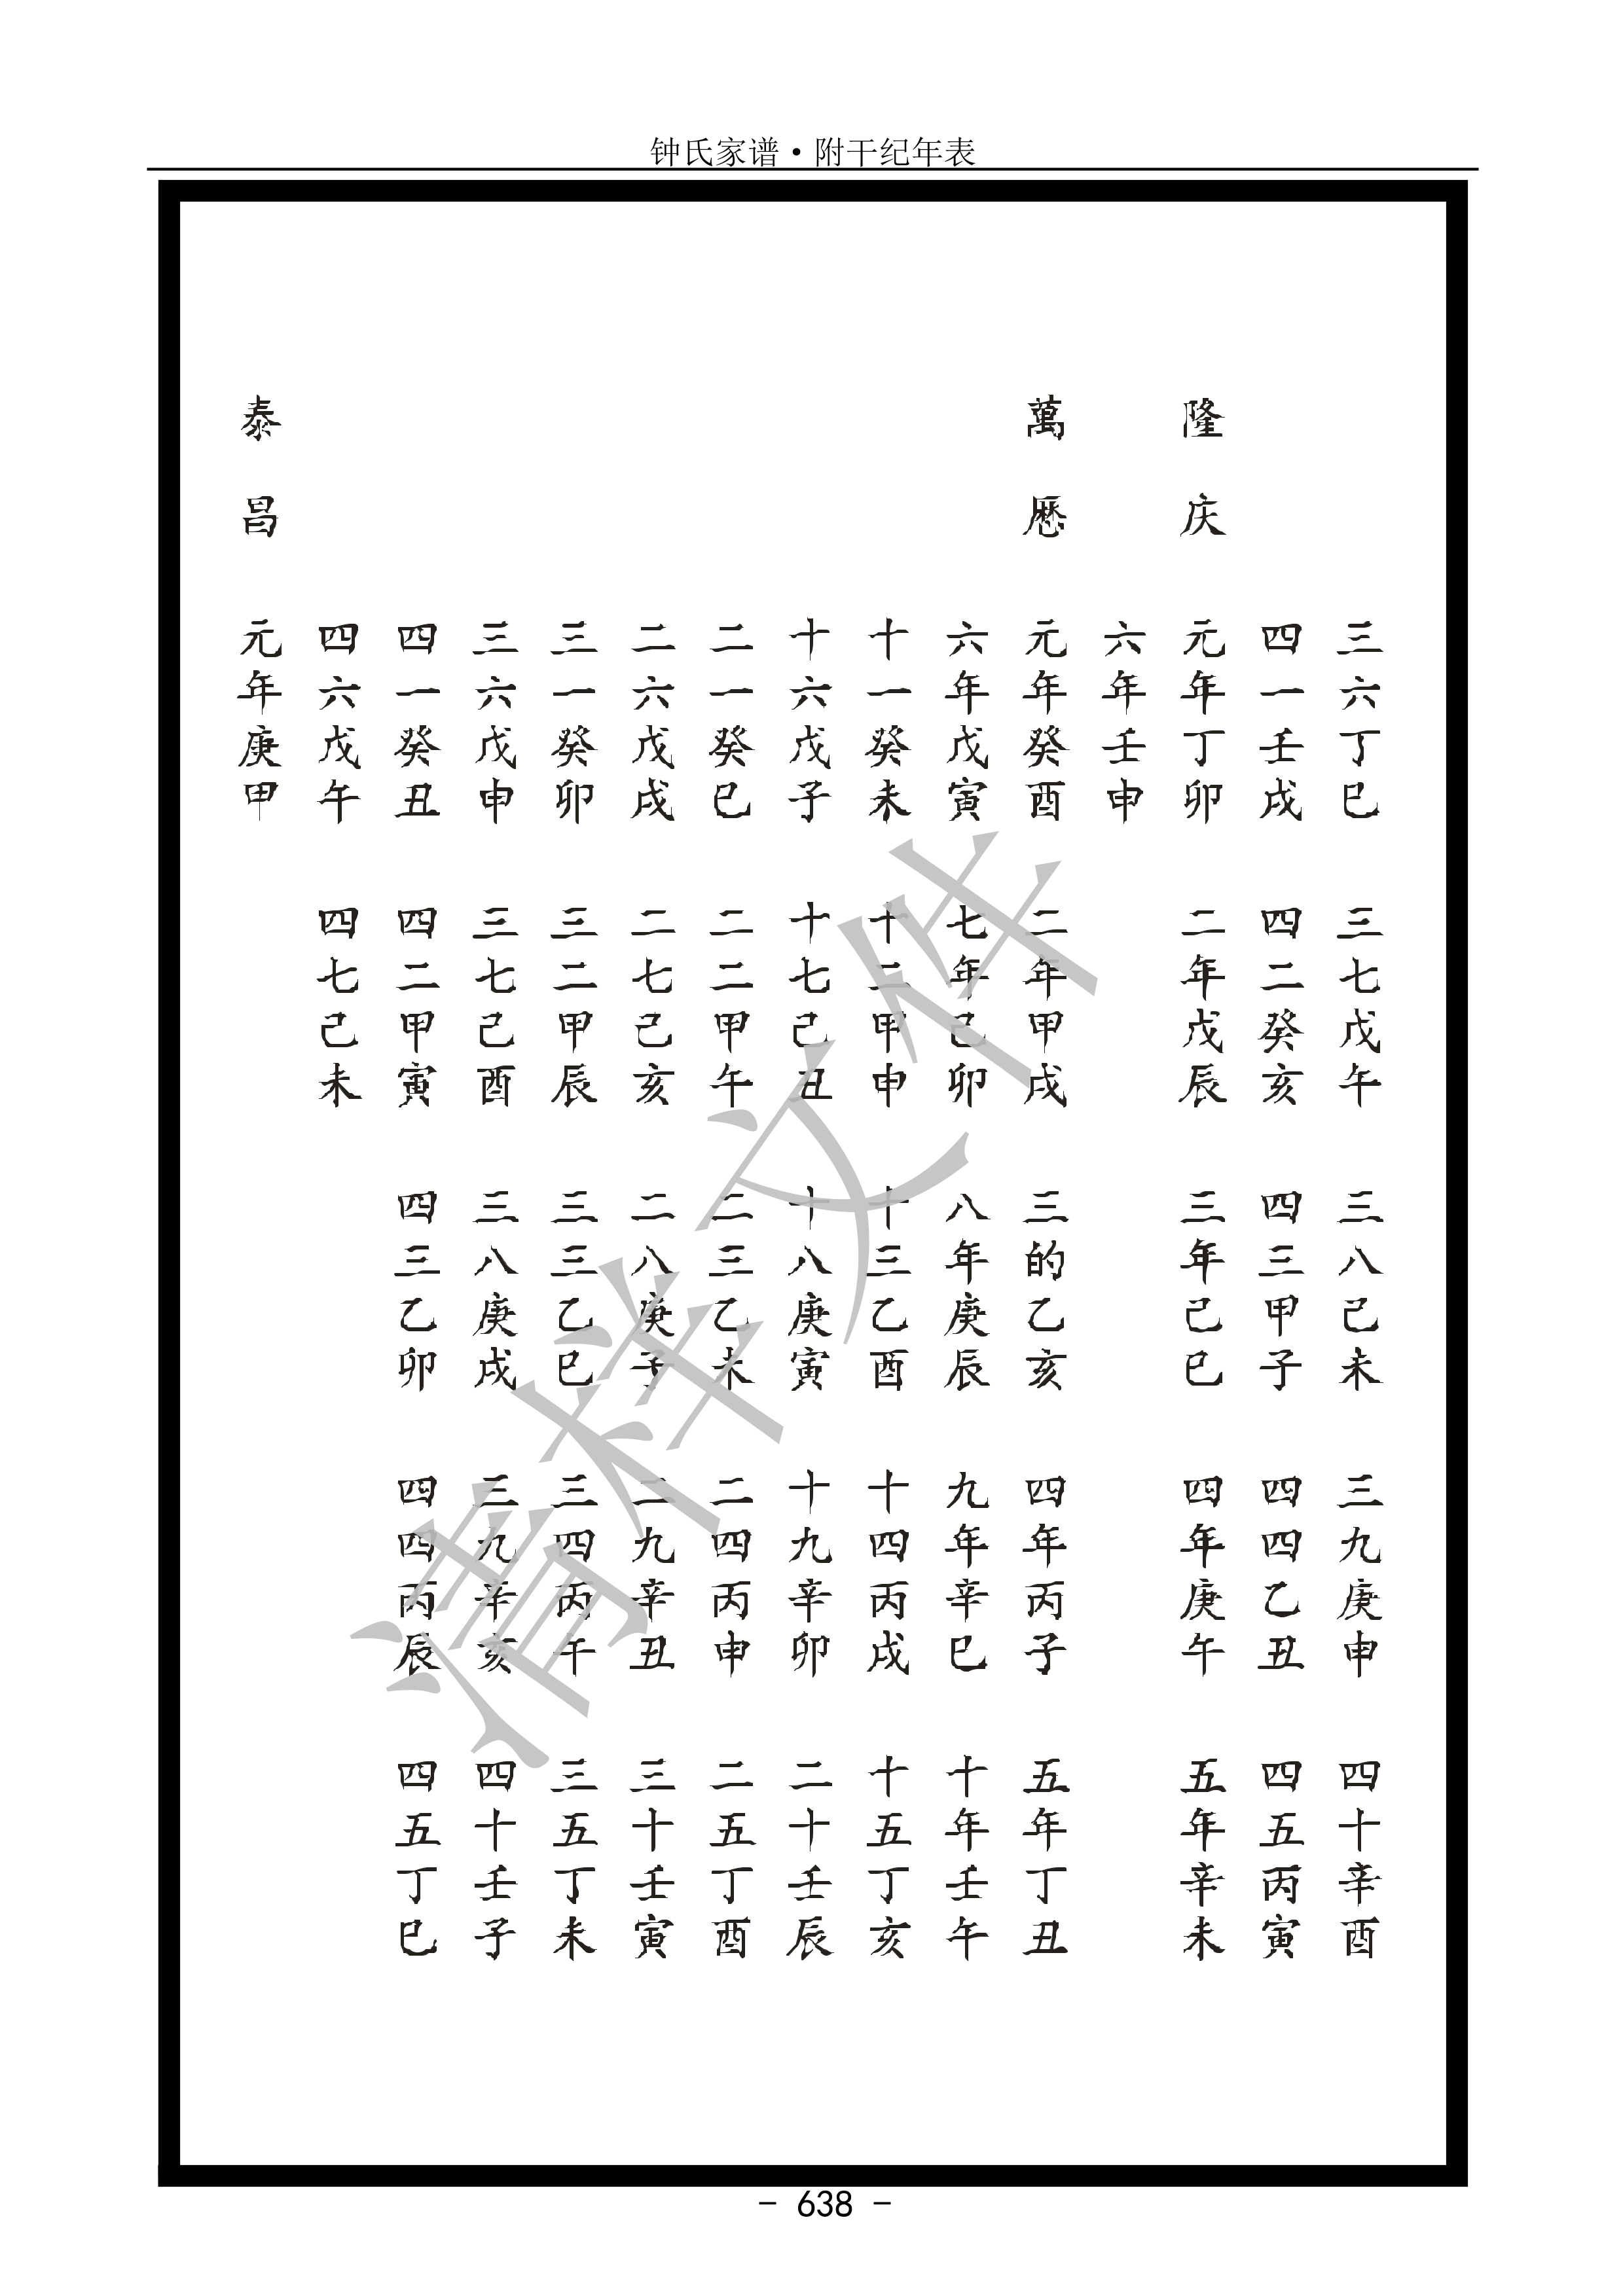 钟氏家谱·附干纪年表
三六丁巳 三七戊午 三八己未 三九庚申 四十辛酉
四一壬戌 四二癸亥 四三甲子 四四乙丑 四五丙寅
隆庆 元年丁卯 二年戊辰 三年己巳 四年庚午 五年辛未
六年壬申
萬慝 元年癸酉 二年甲戌 三的乙亥 四年丙子 五年丁丑
六年戊寅 七年己卯 八年庚辰 九年辛巳 十年壬午
十一癸未 十二甲申 十三乙酉 十四丙戌 十五丁亥
十六戊子 十七己丑 十八庚寅 十九辛卯 二十壬辰
二一癸巳 二二甲午 二三乙未 二四丙申 二五丁酉
二六戊戌 二七己亥 二八庚子 二九辛丑 三十壬寅
三一癸卯 三二甲辰 三三乙巳 三四丙午 三五丁未
三六戊申 三七己酉 三八庚戌 三九辛亥 四十壬子
四一癸丑 四二甲寅 四三乙卯 四四丙辰 四五丁巳
四六戊午 四七己未
泰昌 元年庚甲
清样文件
- 638 -